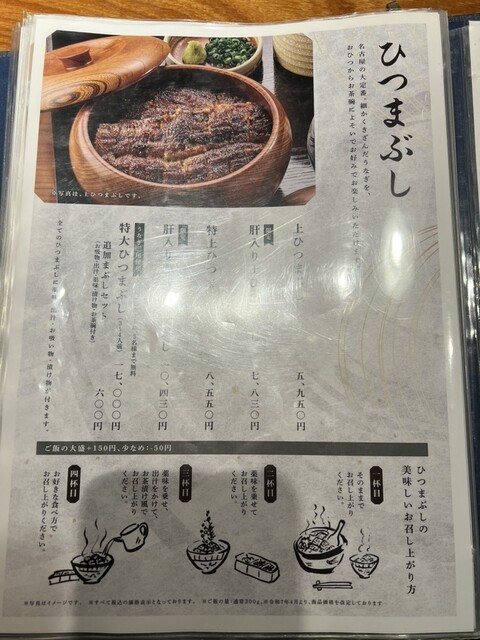 ひつまぶし
名古屋の大定番。細かくきざんだうなぎを、
おひつからお茶碗によそいでお好みでお楽しみいただけます。
※写真は、上ひつまぶしです。
上ひつまぶし 五、九五〇円
肝入り上ひ 七、八三〇円
特上ひつ 八、五五〇円
肝入り 〇、四三〇円
特大ひつまぶし(3〜4人前) 一七、〇〇〇円
名様まで無料
追加まぶしセット 六〇〇円
(お吸物・出汁・薬味・漬け物・お茶碗付き)
全てのひつまぶしに薬味・出汁・お吸い物・漬け物が付きます。
ご飯の大盛+150円、少なめ:-50円
ひつまぶしの
美味しいお召し上がり方
一杯目
そのままで
お召し上がり
ください。
二杯目
薬味を乗せて
お召し上がり
ください。
三杯目
薬味を乗せ、
出汁をかけて、
お茶漬け風で
お召し上がり
ください。
四杯目
お好きな食べ方で
お召し上がりください。
※写真はイメージです。 ※すべて税込の価格表示となっております。 ※ご飯の量:通常300g。※令和7年4月より、商品価格を改定しております